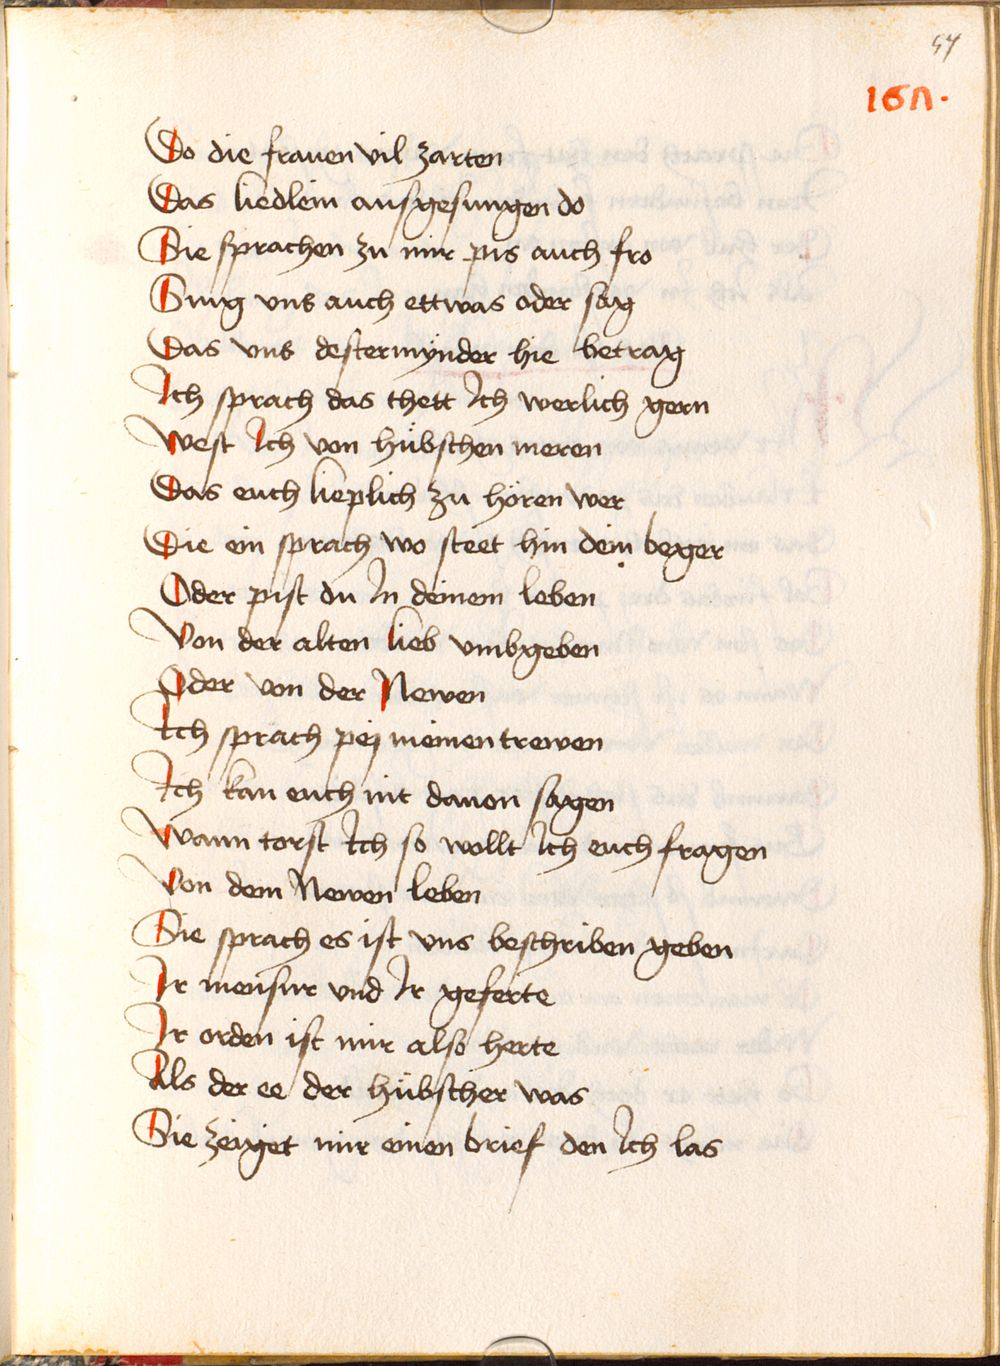 57
167.
Do die frauen vil zarten
Das liedlein ausgesungen do
Sie sprachen zu mir pis auch fro
Sing uns auch ettwas oder sag
Das uns destermynder hie betrag
Ich sprach das thett Ich werlich gern
West Ich von hübschen meren
Das euch lieplich zu hören wer
Die ein sprach wo steet hin dein beger
Oder pist du In deinem leben
Von der alten lieb umbgeben
Oder von der Newen
Ich sprach pej meinen trewen
Ich kan euch nit dauon sagen
Wann torst Ich so wollt Ich euch fragen
Von dem Newen leben
Sie sprach es ist uns beschriben geben
Ir mensur und Ir geferte
Ir orden ist mir also herte
Als der ee der hübscher was
Sie zeiget mir einen brief den Ich las